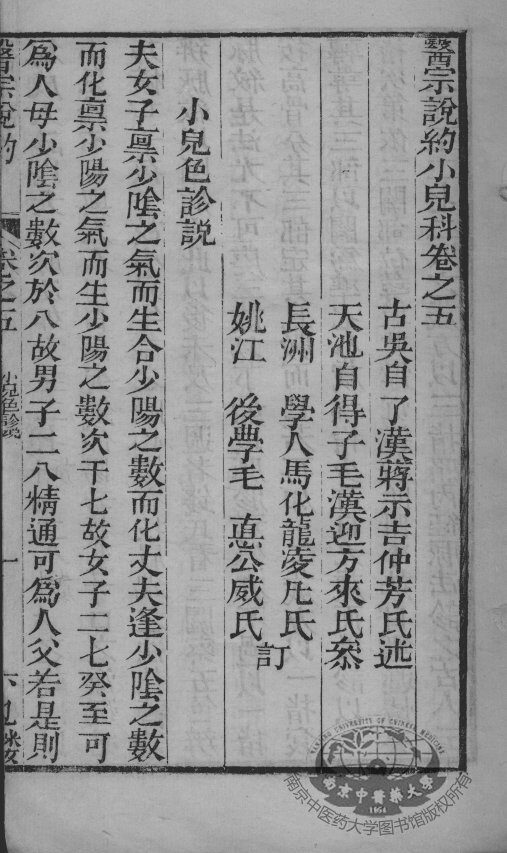 醫宗說約小兒科卷之五
古吳自了漢蔣示吉仲芳氏述
天池自得子毛漢迎方來氏叅
長洲 學人馬化龍凌凡氏
姚江 後學毛 惪公威氏
訂
小兒色診說
夫女子禀少陰之氣而生合少陽之數而化丈夫逢少陰之數
而化禀少陽之氣而生少陽之數次于七故女子二七癸至可
爲人母少陰之數次於八故男子二八精通可爲人父若是則
醫宗說約
卷之五
小兒色診說
一
南京中醫藥大學
NANJING UNIVERSITY OF CHINESE MEDICINE
1954
南京中医药大学图书馆版权所有